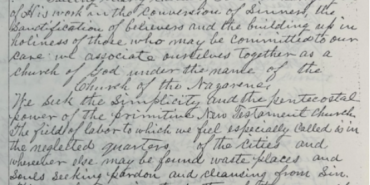 of His work in the conversion of Sinners, the
Sanctification of believers and the building up in
holiness of those who may be committed to our
care. we associate ourselves together as a
church of God under the name of the
Church of the Nazarene
We seek the Simplicity and the pentecostal
power of the primitive New Testament church.
The field of labor to which we feel especially called is in
the neglected quarters of the Cities and
wherever else may be found waste places and
Souls seeking pardon and cleansing from Sin.